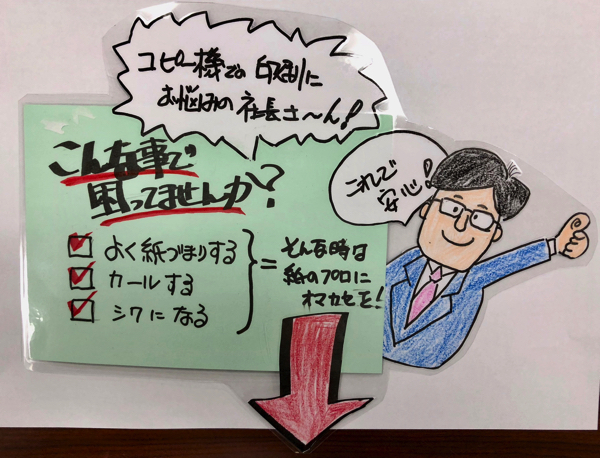 コピー機での印刷に
お悩みの社長さ〜ん!
こんな事で
困ってませんか?
よく紙づまりする
カールする
シワになる
=
そんな時は
紙のプロに
オマカセを!
これで
安心!